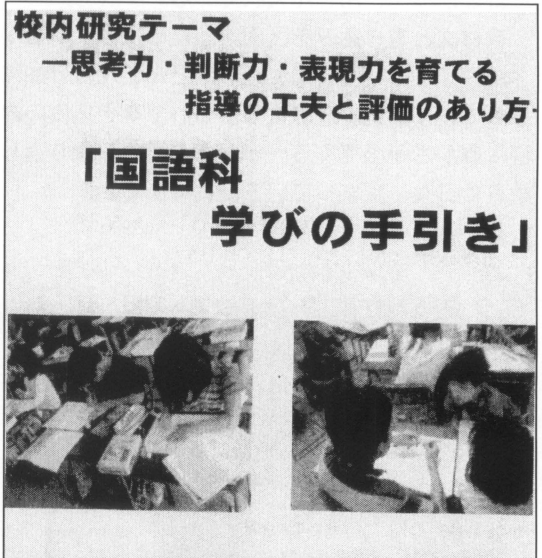 校内研究テーマ
―思考力・判断力・表現力を育てる
指導の工夫と評価のあり方-
「国語科
学びの手引き」